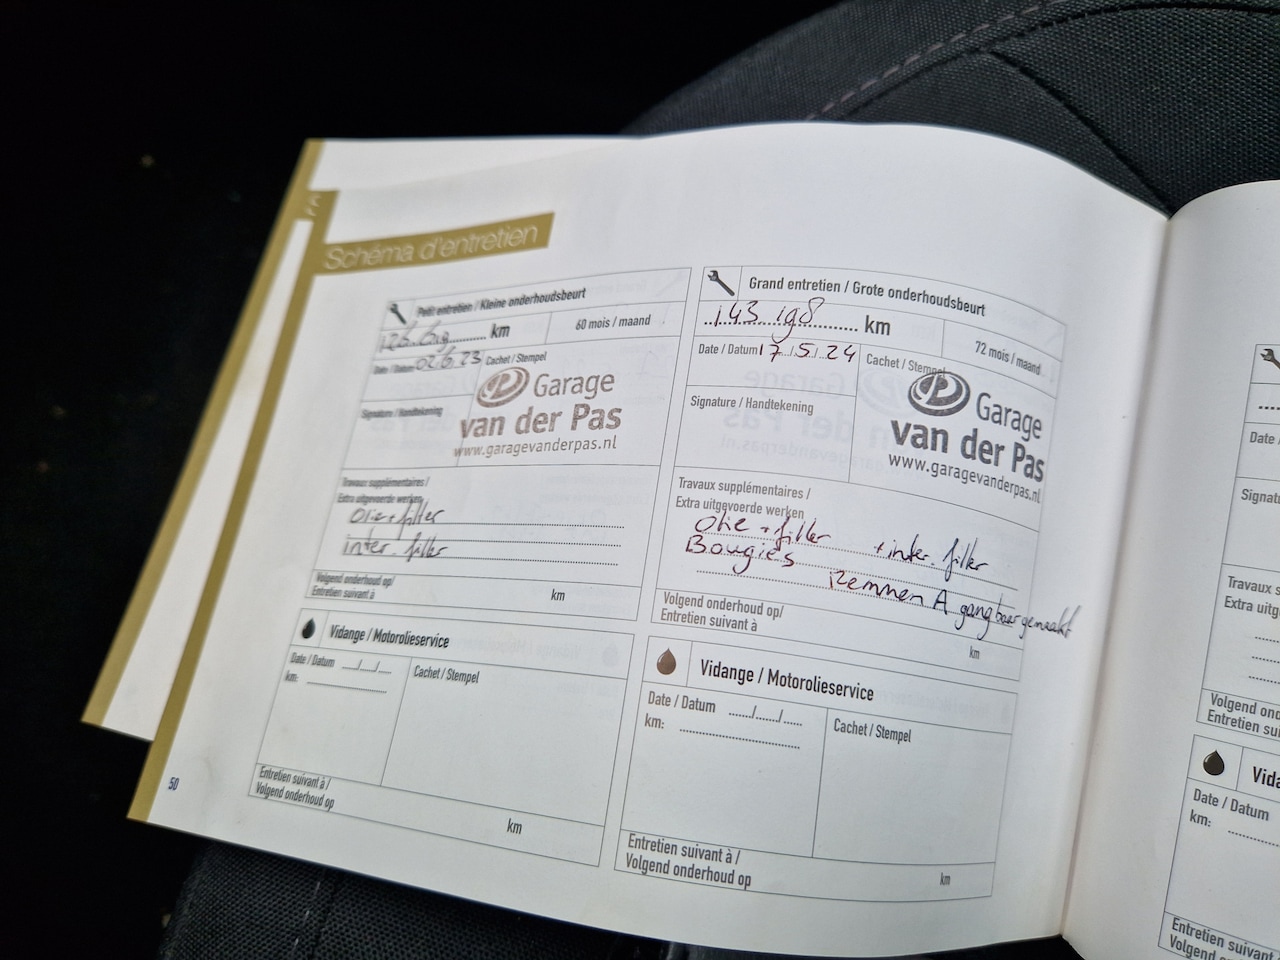 Schéma d'entretien
Petit entretien / Kleine onderhoudsbeurt
km
60 mois / maand
Date / Datum 02.6.23
Cachet / Stempel
Garage
van der Pas
www.garagevanderpas.nl
Signature / Handtekening
Travaux supplémentaires /
Extra uitgevoerde werken
Olie + filter
inter. filter
Volgend onderhoud op/
Entretien suivant à
km
Vidange / Motorolieservice
Date / Datum ...../...../.....
km:
Cachet / Stempel
Entretien suivant à /
Volgend onderhoud op
km
50
Grand entretien / Grote onderhoudsbeurt
143.198 km
72 mois / maand
Date / Datum 17.5.24
Cachet / Stempel
Garage
van der Pas
www.garagevanderpas.nl
Signature / Handtekening
Travaux supplémentaires /
Extra uitgevoerde werken
Olie + filter + inter. filter
Bougies
Remmen A gangbaar gemaakt
Volgend onderhoud op/
Entretien suivant à
km
Vidange / Motorolieservice
Date / Datum ...../...../.....
km:
Cachet / Stempel
Entretien suivant à /
Volgend onderhoud op
km
Date /
Travaux
Extra
Volgend
Entretien
Date / Datum
km:
Entretien suivant
Volgend